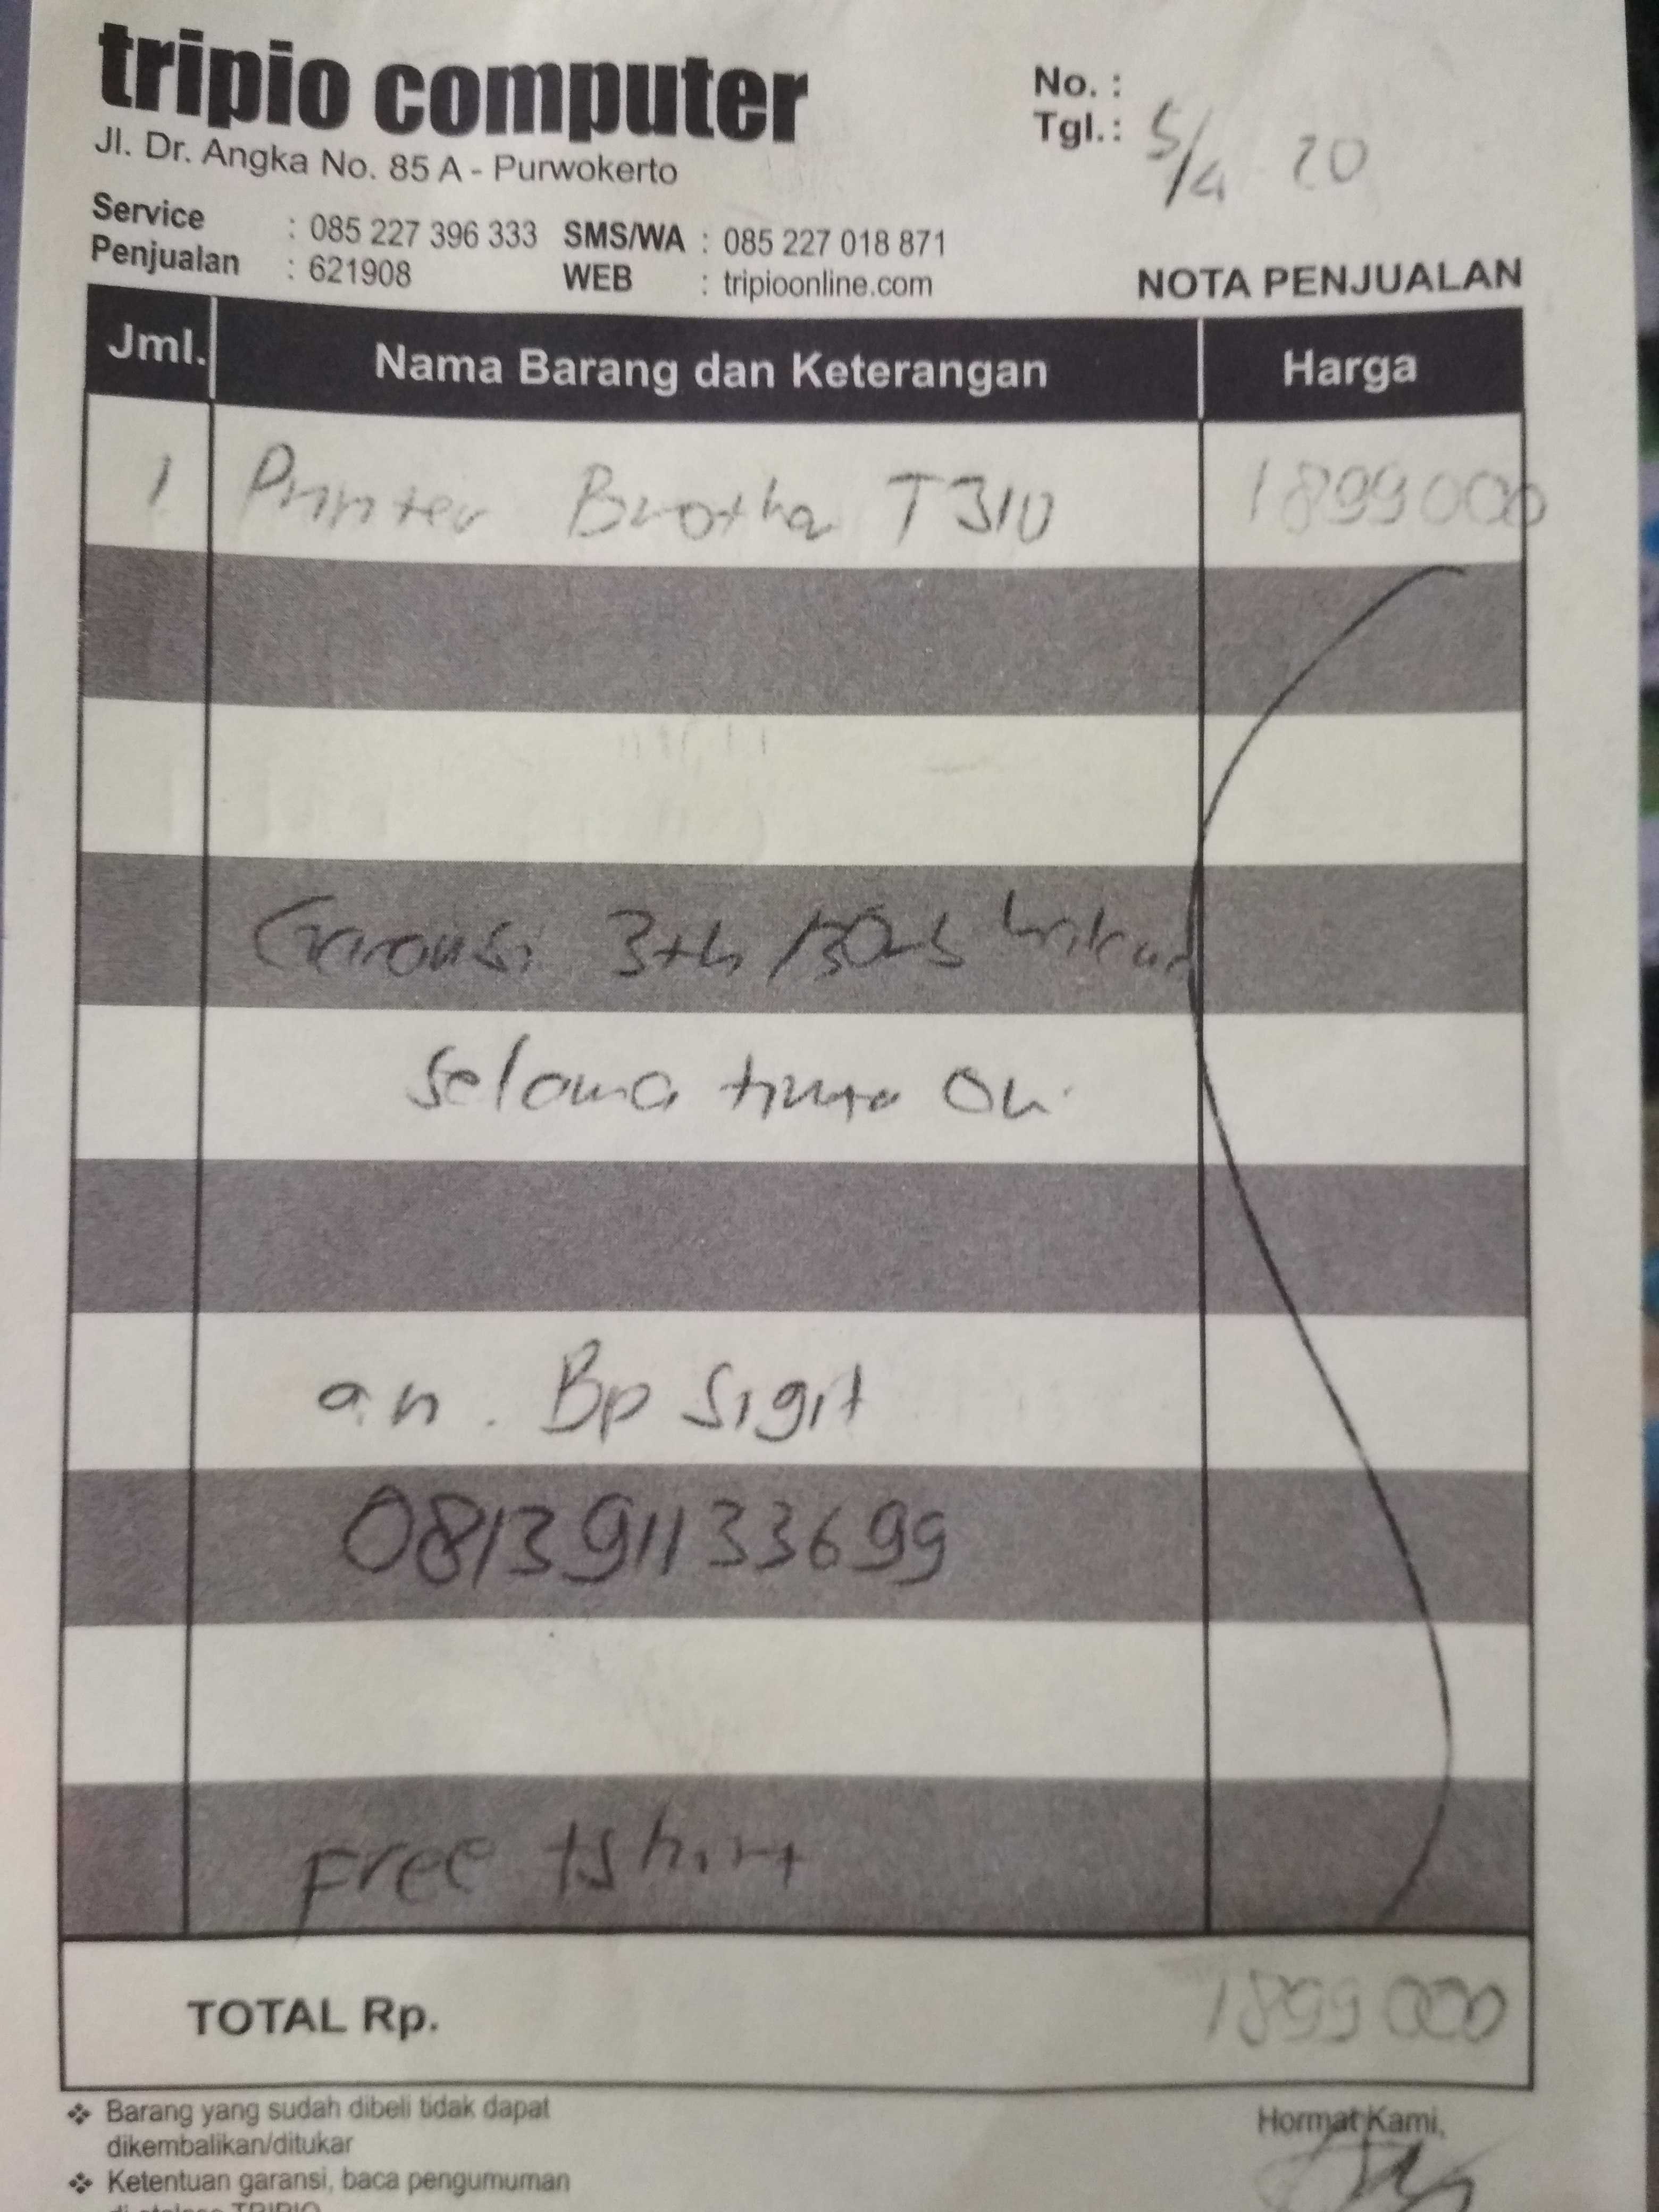 tripio computer
Jl. Dr. Angka No. 85 A - Purwokerto
No. :
Tgl.: 5/4 20
Service : 085 227 396 333 SMS/WA : 085 227 018 871
Penjualan : 621908 WEB : tripioonline.com
NOTA PENJUALAN
Jml. Nama Barang dan Keterangan Harga
1 Printer Brother T310 1899000
Garansi 3th /30rb
selama tinta Ori
a.n. Bp Sigit
081391133699
Free tshirt
TOTAL Rp. 1899000
❖ Barang yang sudah dibeli tidak dapat
dikembalikan/ditukar
❖ Ketentuan garansi, baca pengumuman
di etalase TRIPIO
Hormat Kami,